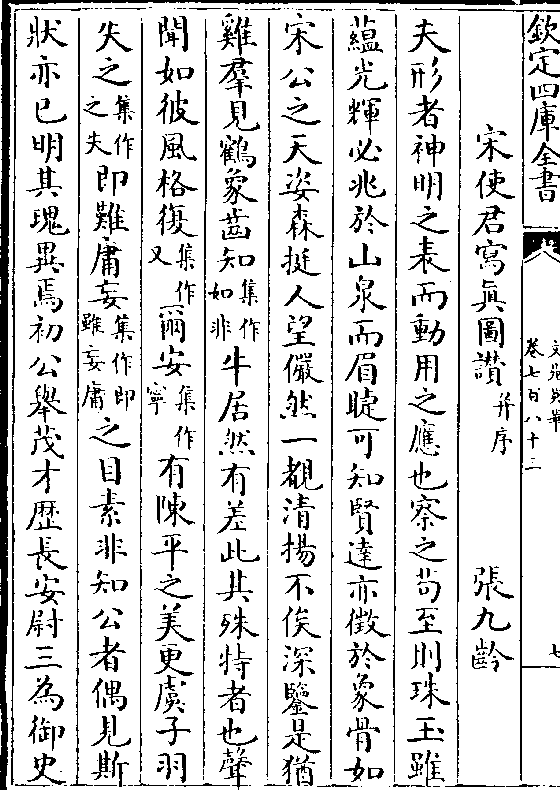 欽定四庫全書
文苑英華
卷七百八十三
七
宋使君寫真圖讃并序 張九齡
夫形者神明之表而動用之應也察之苟至則珠玉雖
藴光輝必兆於山泉而眉睫可知賢達亦徴於象骨如
宋公之天姿森挺人望儼然一覩清揚不俟深鑒是猶
雞羣見鶴象齒知集作如非牛居然有差此其殊特者也聲
聞如彼風格復集作又爾安集作寧有陳平之美更虞子羽
失之集作之失即難庸妄集作即雖妄庸之目素非知公者偶見斯
狀亦已明其瑰異焉初公舉茂才歴長安尉三為御史